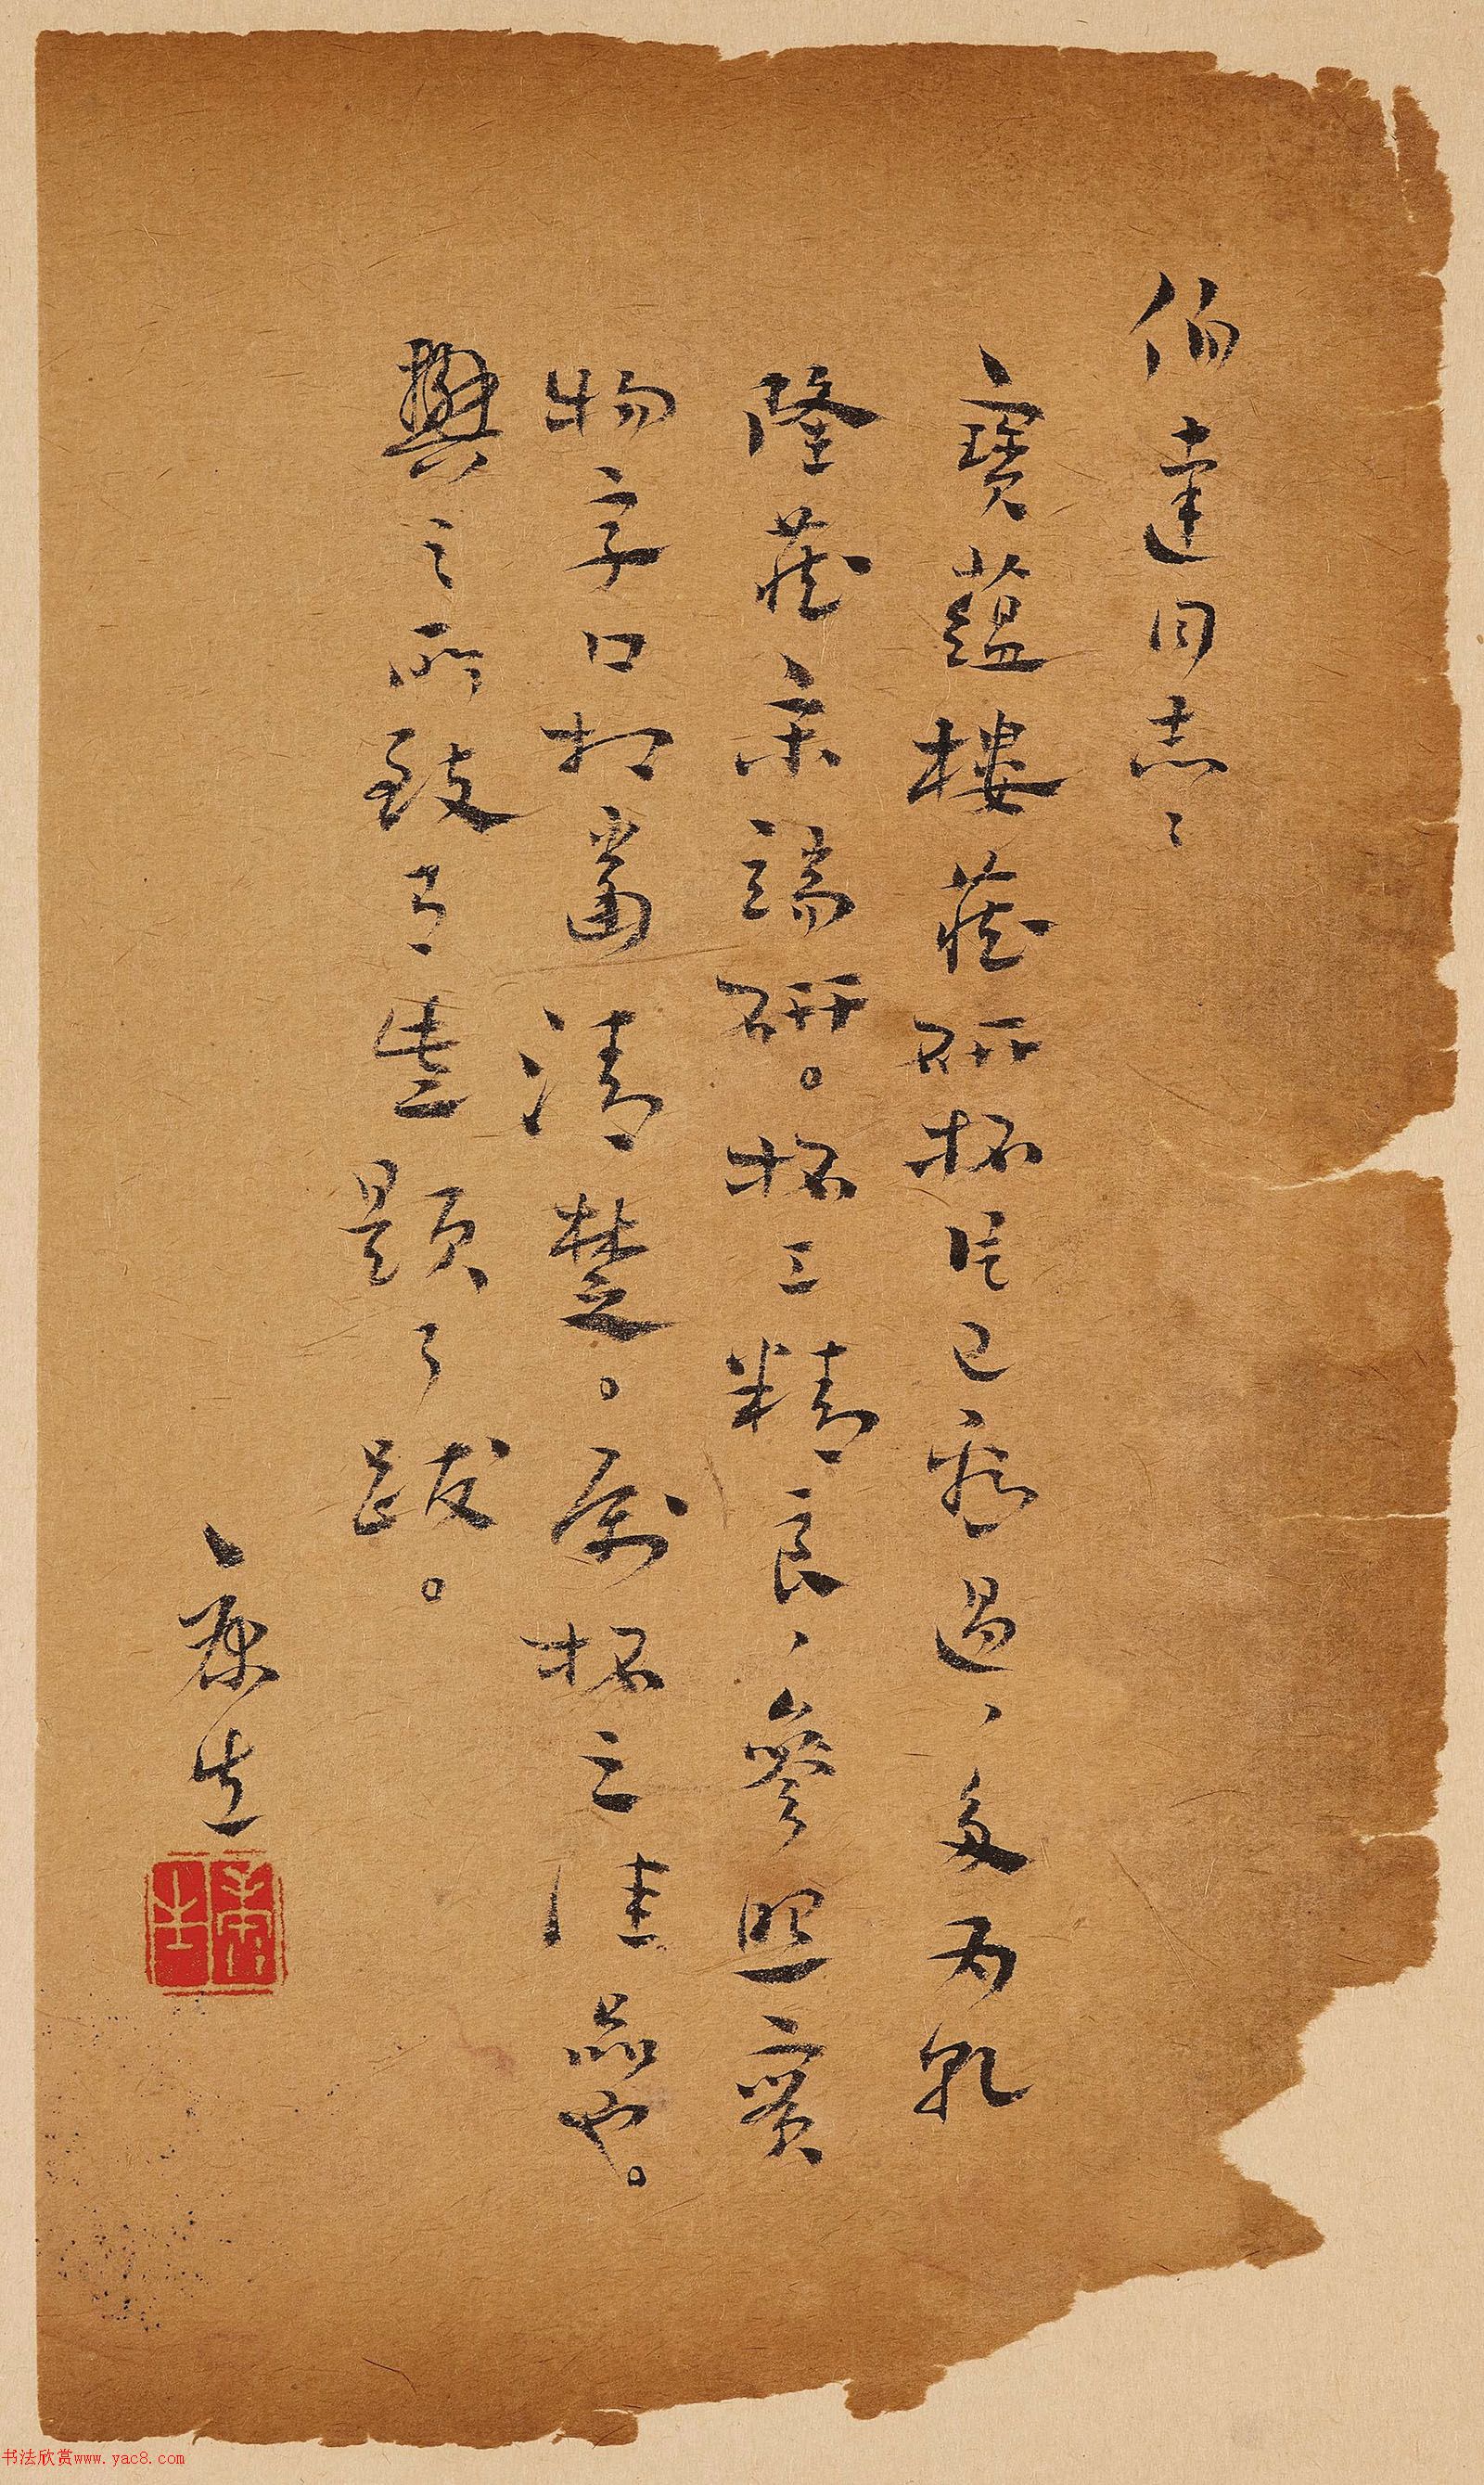 伯達同志:
寶蘊樓藏研拓片已看過、多为乾
隆藏宋端研。拓工精良、參照實
物字口相當清楚。屬拓之佳品也。
興之所致題了跋。
康生
康生
书法欣赏www.yac8.com